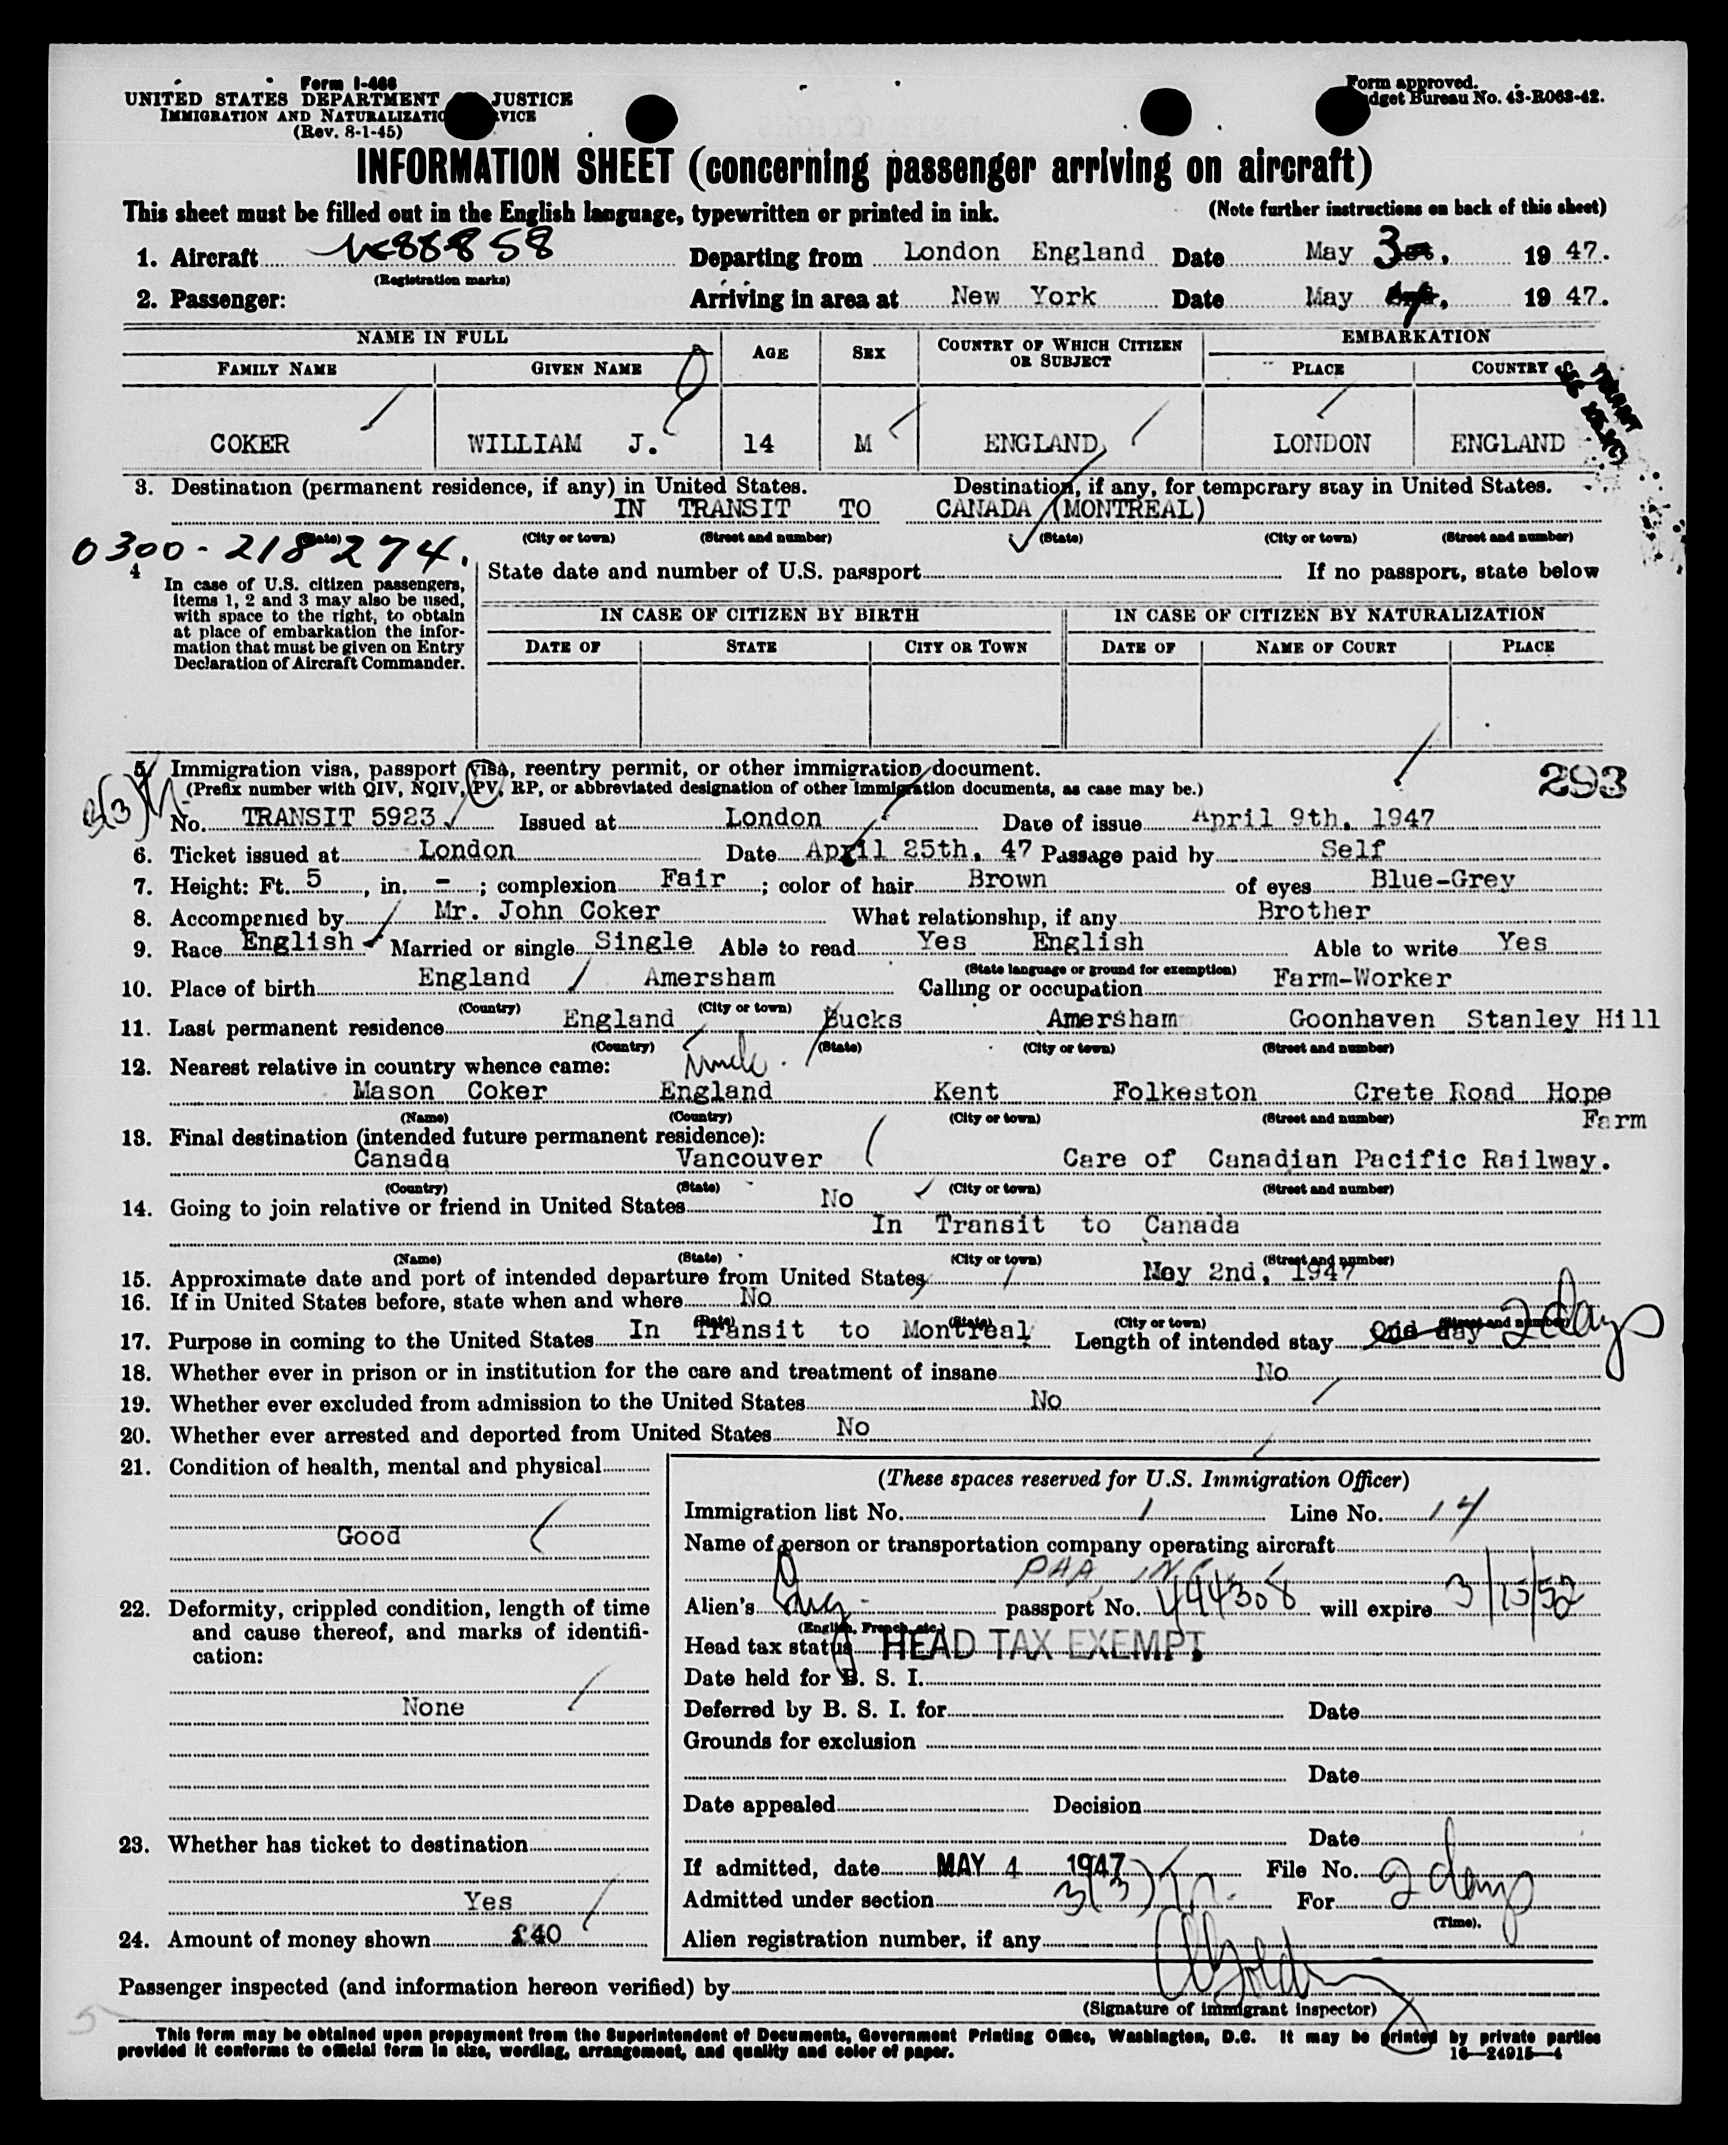 Form I-466
UNITED STATES DEPARTMENT JUSTICE
IMMIGRATION AND NATURALIZATIO RVICE
(Rev. 8-1-45)
Form approved.
dget Bureau No. 43-R063-42.
INFORMATION SHEET (concerning passenger arriving on aircraft)
This sheet must be filled out in the English language, typewritten or printed in ink. (Note further instructions on back of this sheet)
1. Aircraft 88858 Departing from London England Date May 3, 1947.
(Registration marks)
2. Passenger: Arriving in area at New York Date May 4, 1947.
NAME IN FULL AGE SEX COUNTRY OF WHICH CITIZEN OR SUBJECT EMBARKATION
FAMILY NAME GIVEN NAME PLACE COUNTRY
COKER WILLIAM J. 14 M ENGLAND LONDON ENGLAND
3. Destination (permanent residence, if any) in United States. Destination, if any, for temporary stay in United States.
IN TRANSIT TO CANADA (MONTREAL)
(State) (City or town) (Street and number) (State) (City or town) (Street and number)
0300-218274.
4 In case of U.S. citizen passengers, items 1, 2 and 3 may also be used, with space to the right, to obtain at place of embarkation the information that must be given on Entry Declaration of Aircraft Commander.
State date and number of U.S. passport If no passport, state below
IN CASE OF CITIZEN BY BIRTH IN CASE OF CITIZEN BY NATURALIZATION
DATE OF STATE CITY OR TOWN DATE OF NAME OF COURT PLACE
5. Immigration visa, passport visa, reentry permit, or other immigration document.
293
(Prefix number with QIV, NQIV, PV, RP, or abbreviated designation of other immigration documents, as case may be.)
No. TRANSIT 5923 Issued at London Date of issue April 9th, 1947
6. Ticket issued at London Date April 25th, 47 Passage paid by Self
7. Height: Ft. 5, in. -; complexion Fair; color of hair Brown of eyes Blue-Grey
8. Accompanied by Mr. John Coker What relationship, if any Brother
9. Race English Married or single Single Able to read Yes English Able to write Yes
(State language or ground for exemption)
10. Place of birth England Amersham Calling or occupation Farm-Worker
(Country) (City or town)
11. Last permanent residence England Bucks Amersham Goonhaven Stanley Hill
(Country) (State) (City or town) (Street and number)
12. Nearest relative in country whence came: Uncle.
Mason Coker England Kent Folkeston Crete Road Hope
Farm
(Name) (Country) (City or town) (Street and number)
13. Final destination (intended future permanent residence):
Canada Vancouver Care of Canadian Pacific Railway.
(Country) (State) (City or town) (Street and number)
14. Going to join relative or friend in United States No
In Transit to Canada
(Name) (State) (City or town) (Street and number)
15. Approximate date and port of intended departure from United States May 2nd, 1947
16. If in United States before, state when and where No
(Date) (State) (City or town) (Street and number)
17. Purpose in coming to the United States In Transit to Montreal Length of intended stay One day 2 days
18. Whether ever in prison or in institution for the care and treatment of insane No
19. Whether ever excluded from admission to the United States No
20. Whether ever arrested and deported from United States No
21. Condition of health, mental and physical
Good
22. Deformity, crippled condition, length of time and cause thereof, and marks of identification:
None
23. Whether has ticket to destination
Yes
24. Amount of money shown £40
(These spaces reserved for U.S. Immigration Officer)
Immigration list No. 1 Line No. 14
Name of person or transportation company operating aircraft
PAA, INC
Alien's Eng passport No. 444308 will expire 3/15/52
(English, French, etc.)
Head tax status HEAD TAX EXEMPT
Date held for B. S. I.
Deferred by B. S. I. for Date
Grounds for exclusion
Date
Date appealed Decision
Date
If admitted, date MAY 4 1947 File No.
Admitted under section 3(3) For 2 days
(Time).
Alien registration number, if any
Passenger inspected (and information hereon verified) by
(Signature of immigrant inspector)
This form may be obtained upon prepayment from the Superintendent of Documents, Government Printing Office, Washington, D.C. It may be printed by private parties
provided it conforms to official form in size, wording, arrangement, and quality and color of paper. 16—24915-4